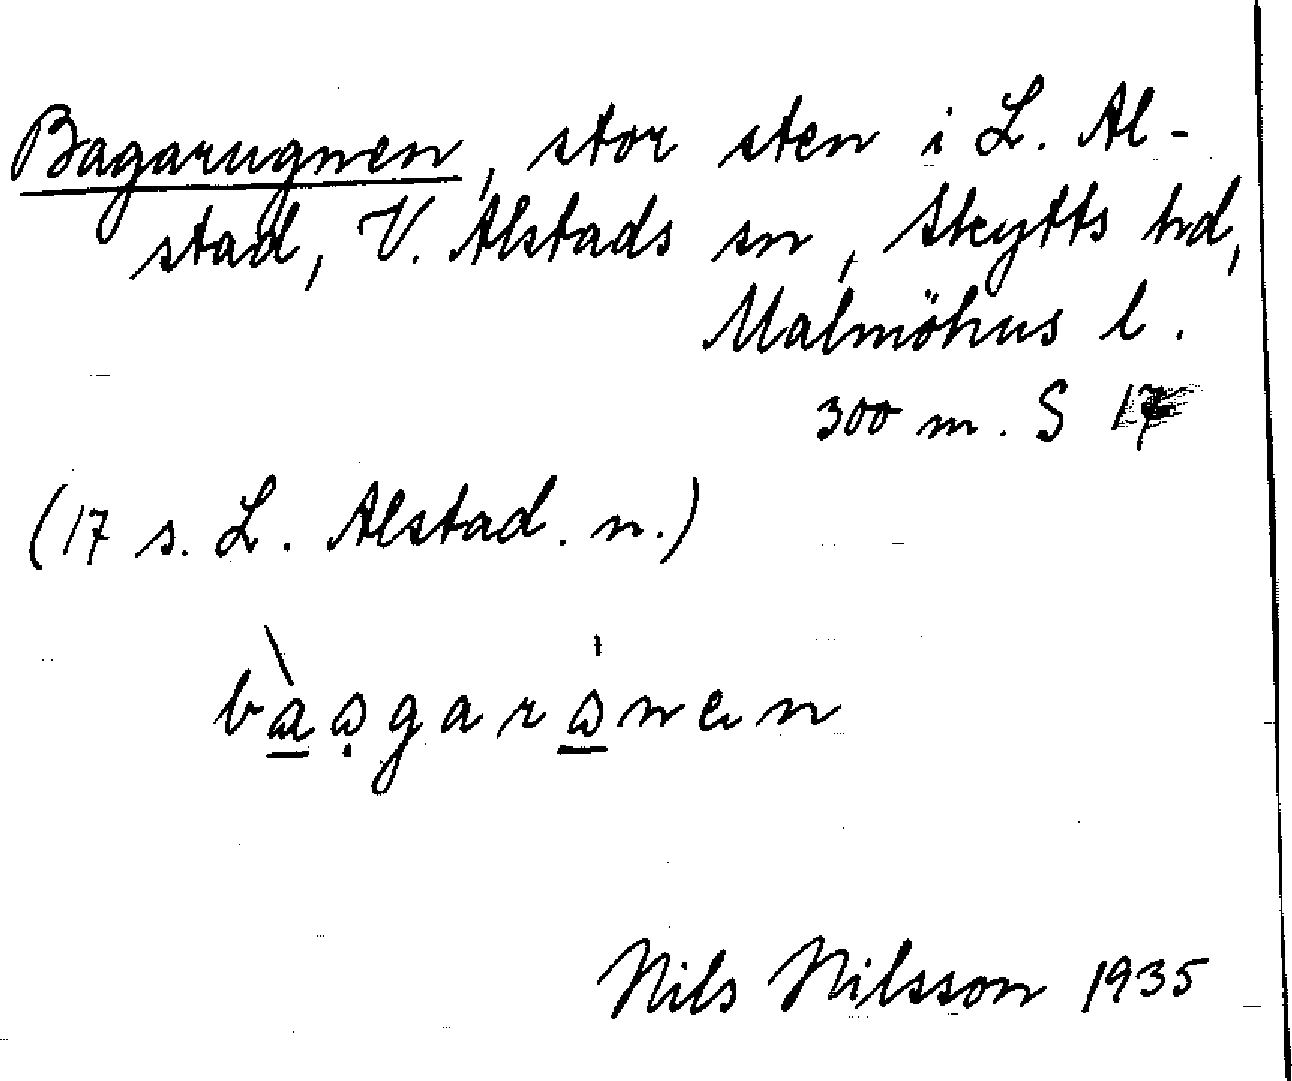 Bagarugnen, stor sten i L. Al-
stad, V. Alstads sn, Skytts hd,
Malmöhus l.
300 m. S 17
(17 s. L. Alstad. n.)
Nils Nilsson 1935